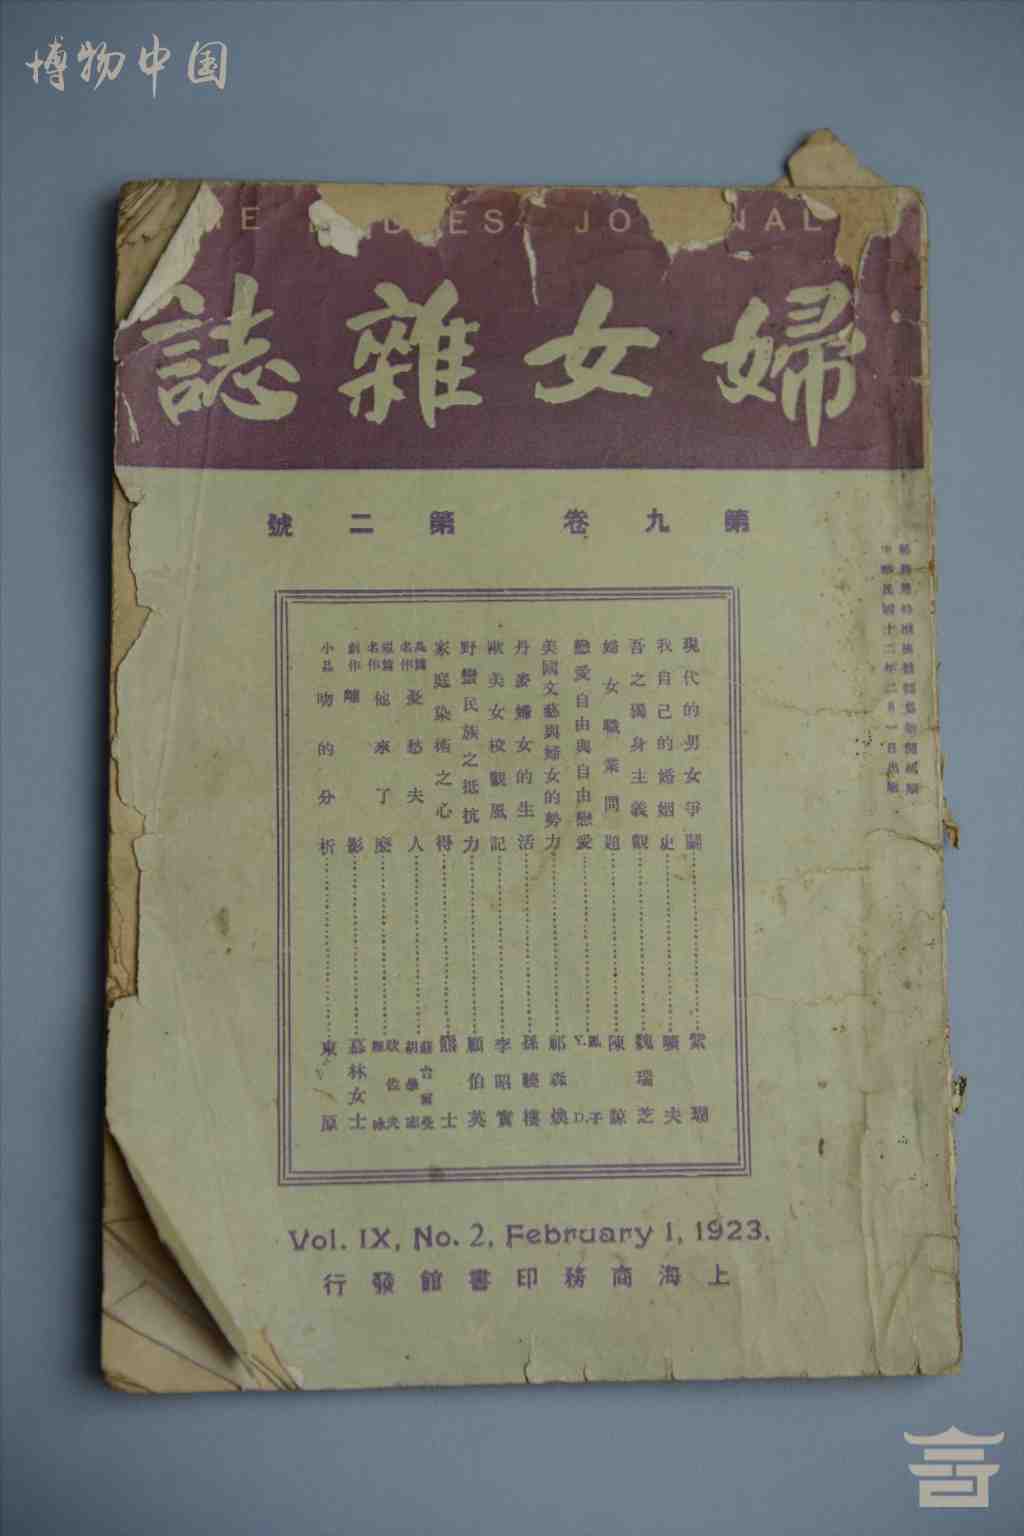 博物中国
THE LADIES' JOURNAL
婦女雜誌
第九卷 第二號
中華民國十二年二月一日出版
現代的男女爭鬪 紫瑚
我自己的婚姻史 曠夫
吾之獨身主義觀 魏瑞芝
婦女職業問題 陳諒
戀愛自由與自由戀愛 鳳子 Y.D.
美國文藝與婦女的勢力 祁森煥
丹麥婦女的生活 孫曉樓
歐美女校觀風記 李昭實
野蠻民族之抵抗力 顧伯英
家庭染術之心得 熊士
名作 憂愁夫人 胡學志
名作 他來了麼
創作 離影 慕林女士
小品 吻的分析 東原
Vol. IX, No. 2, February 1, 1923.
上海商務印書館發行